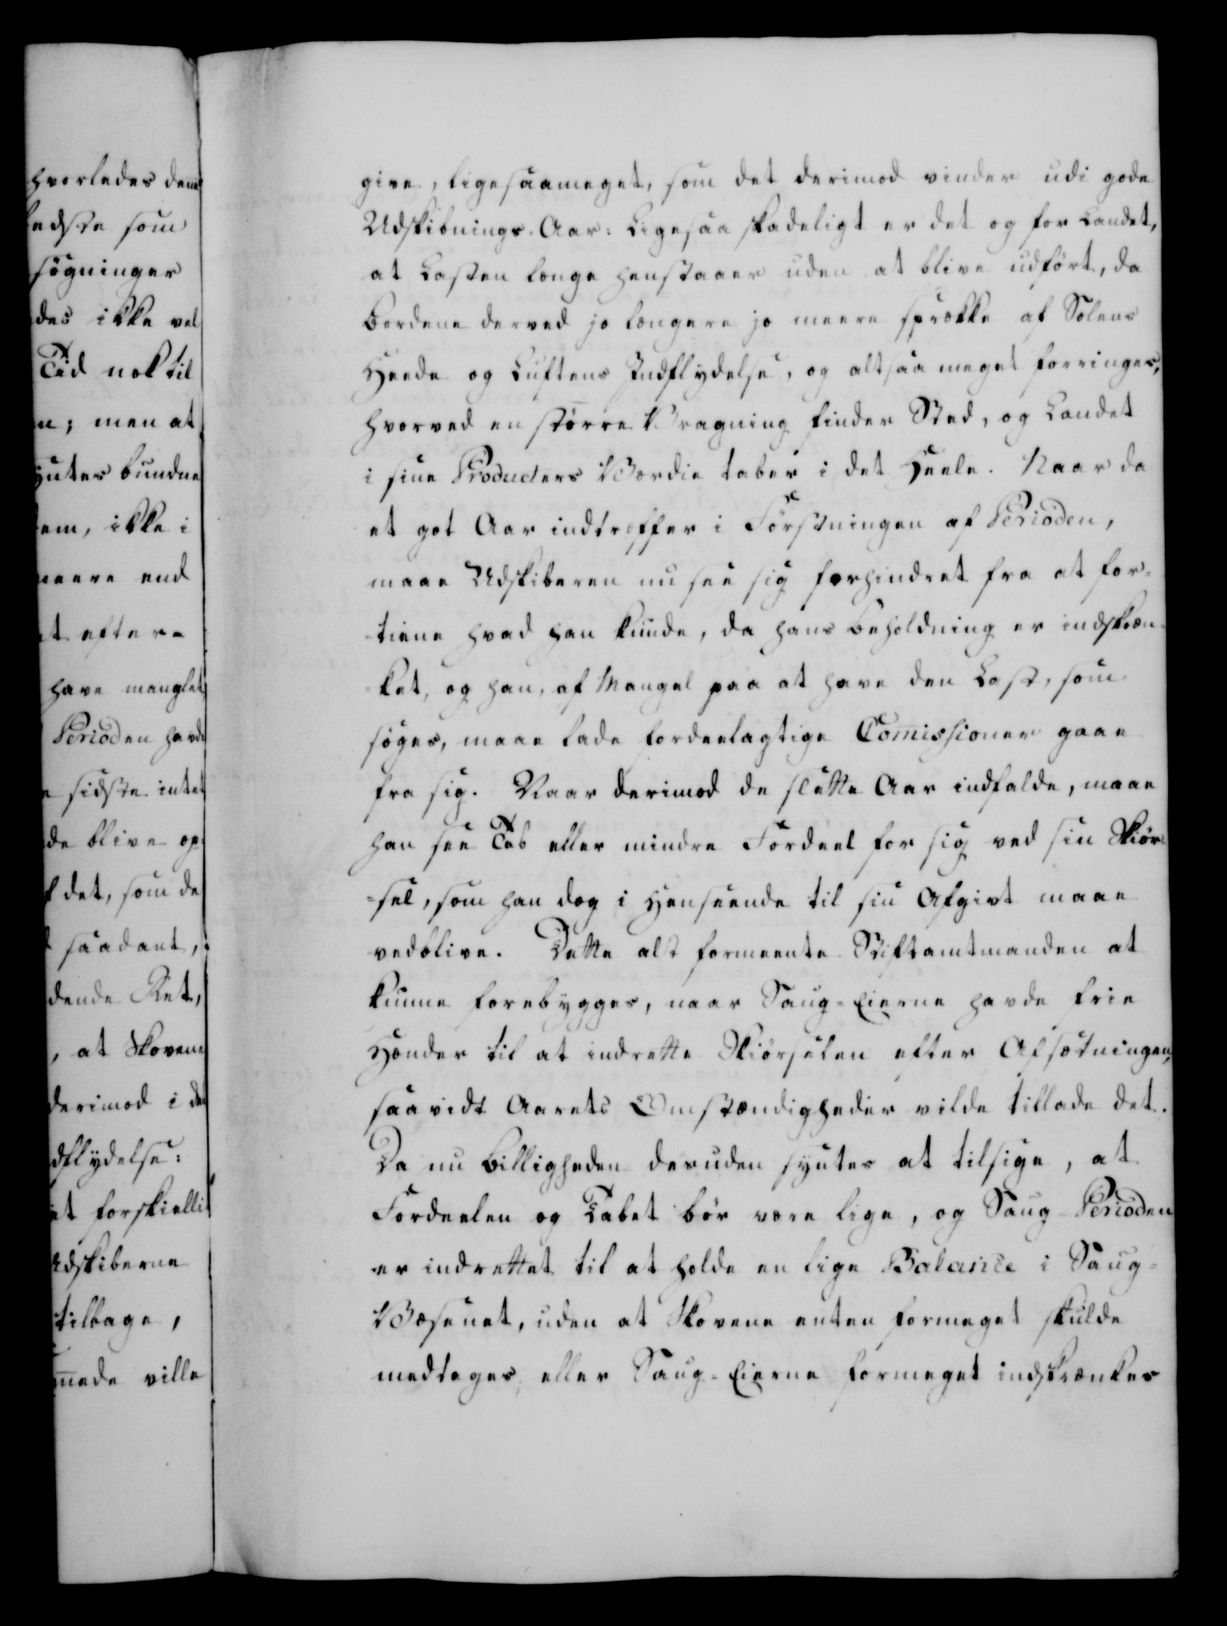 hvorledes denne
sidste som
søgninger
des ikke vel
Tid nok til
n; men at
syntes bundne
em, ikke i
meere end
t efter-
have manglet
Perioden havde
sidste intet
de blive op-
det, som de
saadant,
dende Ret,
, at Skovene
derimod i de
dflydelse:
et forskielli
Udskiberne
tilbage,
nede ville
give, ligesaameget, som det derimod vinder udi gode
Udskibnings-Aar: Ligesaa skadeligt er det og for Landet,
at Lasten længe henstaaer uden at blive udført, da
Bordene derved jo længere jo meere sprække af Solens
Heede og Luftens Indflydelse, og altsaa meget forringes,
hvorved en større Vragning finder Sted, og Landet
i sine Producters Værdie taber i det Heele. Naar da
et got Aar indtreffer i Førstningen af Perioden,
maae Udskiberen nu see sig forhindret fra at for-
tiene hvad han kunde, da hans Beholdning er indskræn-
ket, og han, af Mangel paa at have den Last, som
søges, maae lade fordeelagtige Comissioner gaae
fra sig. Naar derimod de slette Aar indfalde, maae
han see Tab eller mindre Fordeel for sig ved sin Skiør-
sel, som han dog i Henseende til sin Afgivt maae
vedblive. Dette alt formeente Stiftamtmanden at
kunne forebygges, naar Saug-Eierne havde frie
Hænder til at indrette Skiørselen efter Afsætningen,
saavidt Aarets Omstændigheder vilde tillade det.
Da nu Billigheden desuden syntes at tilsige, at
Fordeelen og Tabet bør være lige, og Saug-Perioden
er indrettet til at holde en lige Balance i Saug-
Væsenet, uden at Skovene enten formeget skulde
medtages, eller Saug-Eierne formeget indskrænkes